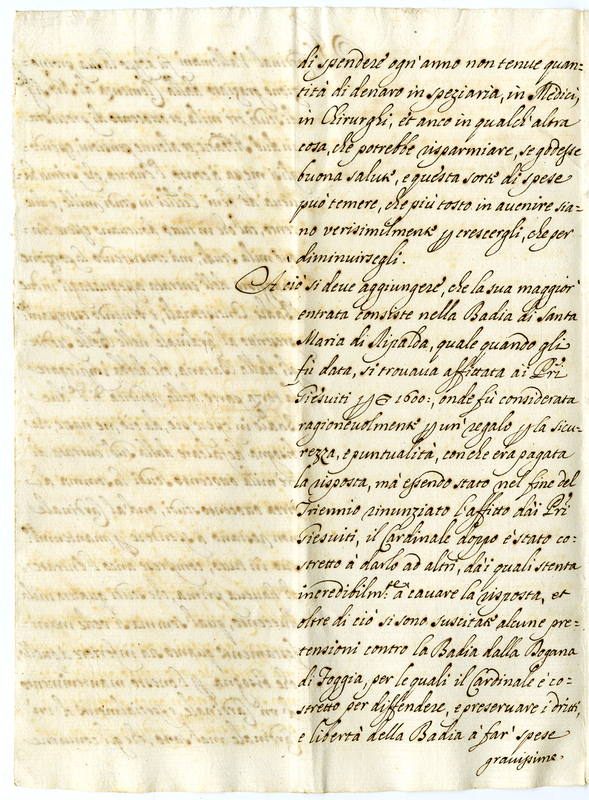 di spendere ogn'anno non tenue quan=
tità di denaro in speziaria, in Medici,
in Chirurghi, et anco in qualch'altra
cosa, che potrebbe risparmiare, se godesse
buona salute, e questa sorte di spese
può temere, che più tosto in auenire sia=
no verisimilmente p crescergli, che per
diminuirsegli.
A ciò si deve aggiungere, che la sua maggior
entrata consiste nella Badia di Santa
Maria di Ripalda, quale quando gli
fù data, si trouaua affittata ai Pri
Giesuiti p 1600:, onde fù considerata
ragioneuolmente p un regalo p la sicu=
rezza, e puntualità, con che era pagata
la risposta, mà essendo stato nel fine del
Triennio rinunziato l'affitto dai Pri
Giesuiti, il Cardinale doppo è stato co=
stretto à darlo ad altri, dai quali stenta
incredibilmte à cauare la risposta, et
oltre di ciò si sono suscitate alcune pre=
tensioni contro la Badia dalla Dogana
di Foggia, per le quali il Cardinale è co=
stretto per diffendere, e preseruare i dritti,
e libertà della Badia à far spese
grauissime.